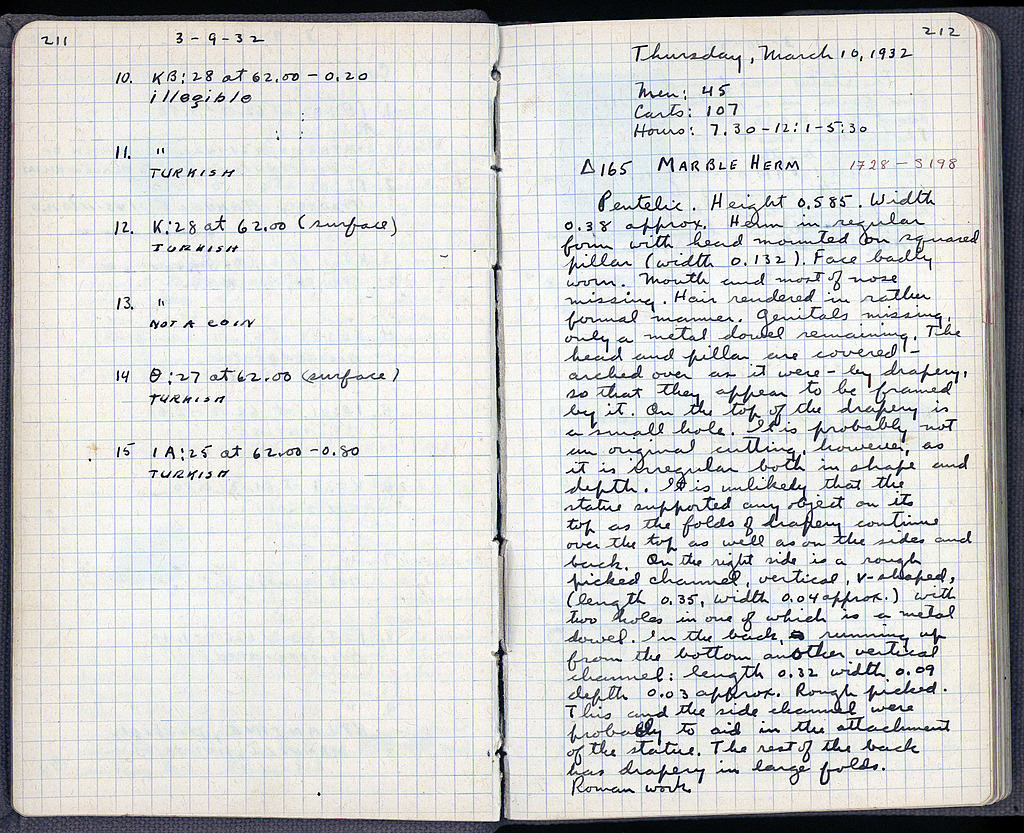 211
3-9-32
10. KB:28 at 62.00 - 0.20
illegible
11. "
TURKISH
12. K:28 at 62.00 (surface)
TURKISH
13. "
NOT A COIN
14 Θ:27 at 62.00 (surface)
TURKISH
15 IA:25 at 62.00 - 0.80
TURKISH
212
Thursday, March 10, 1932
Men: 45
Carts: 107
Hours: 7.30-12:1-5:30
Δ165 MARBLE HERM 1728 - S198
Pentelic. Height 0.585. Width
0.38 approx. Herm in regular
form with head mounted on squared
pillar (width 0.132). Face badly
worn. Mouth and most of nose
missing. Hair rendered in rather
formal manner. Genitals missing,
only a metal dowel remaining. The
head and pillar are covered -
arched over as it were - by drapery,
so that they appear to be framed
by it. On the top of the drapery is
a small hole. It is probably not
an original cutting, however, as
it is irregular both in shape and
depth. It is unlikely that the
statue supported any object on its
top as the folds of drapery continue
over the top as well as on the sides and
back. On the right side is a rough
picked channel, vertical, v-shaped,
(length 0.35, width 0.04 approx.) with
two holes in one of which is a metal
dowel. In the back, running up
from the bottom another vertical
channel: length 0.32 width 0.09
depth 0.03 approx. Rough picked.
This and the side channel were
probably to aid in the attachment
of the statue. The rest of the back
has drapery in large folds.
Roman work